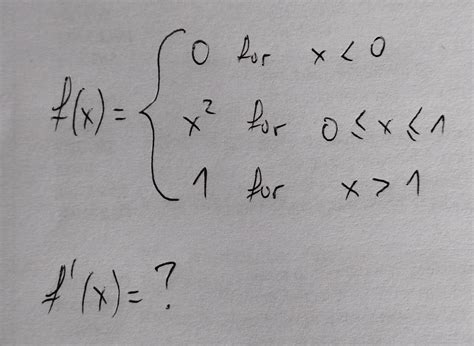 0 for x < 0
f(x) = { x² for 0 ≤ x ≤ 1
1 for x > 1
f'(x) = ?